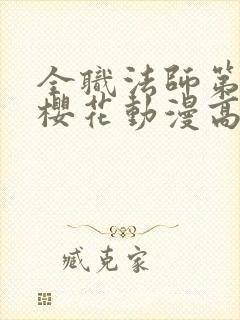 全職法師第
櫻花動漫高
臧克家